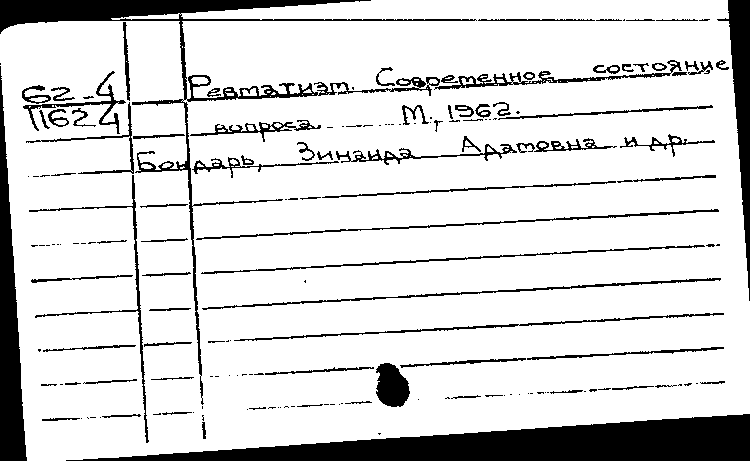 62-4 Ревматизм. Современное состояние
11624 вопроса. М., 1962.
Бондарь, Зинаида Адамовна и др.